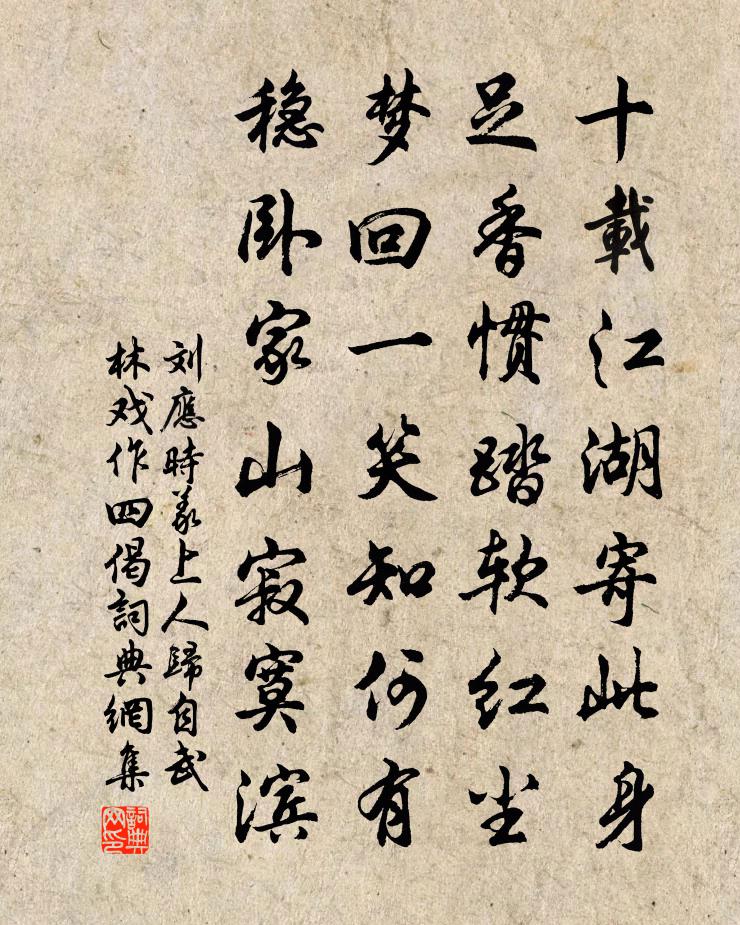 十載江湖寄此身
足香慣踏软红尘
梦回一笑知何有
稳卧家山寂寞滨
刘應時義上人歸自武
林戏作四偈詞典網集
詞典网印